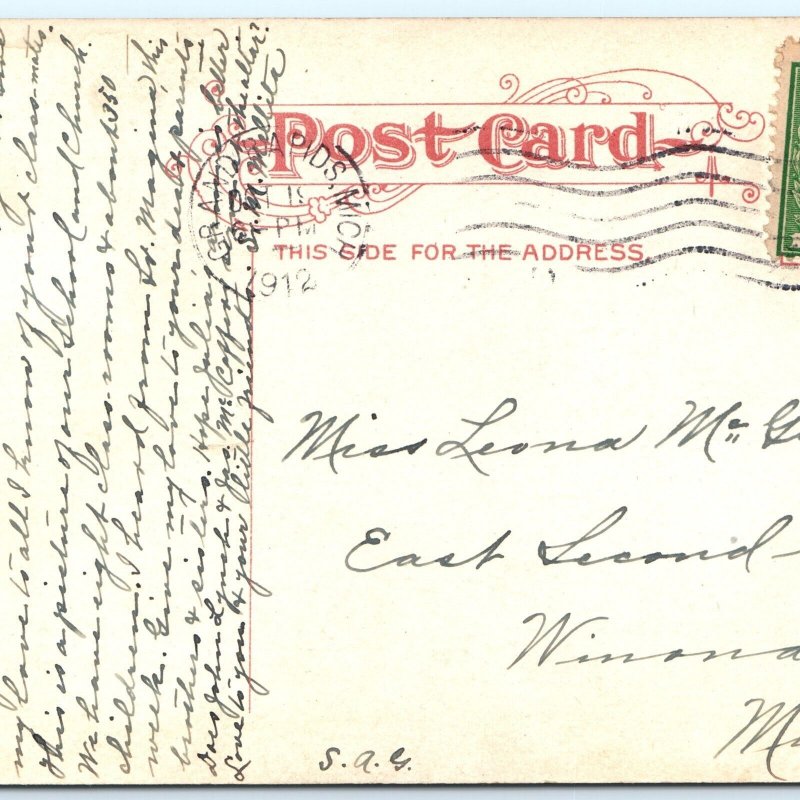 Post Card
THIS SIDE FOR THE ADDRESS
GRAND RAPIDS, MICH
19
PM
1912
Miss Leona Mc
East Second
Winona
S.A.G.
my love to all I know of your class-mates.
This is a picture of our School and Church.
We have eight class-rooms & about 350
children. I heard from Sr. Magina this
week. Give my love to your dear parents
brothers & sisters. Hope Julia is better
Does John Lynch & Jas. McCaffrey serve the altar?
Love to you & your little friends. Sr. M. Mellita